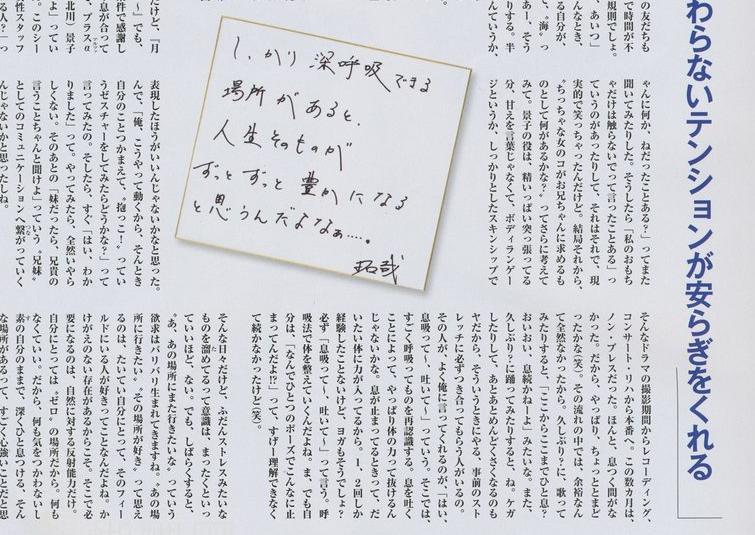 わらないテンションが安らぎをくれる
の友だちも
で時間が不
規則でしょ。
あいつ」
んなとき、
る自分が、
あー、そう
りする。半
んていうか、
ゃんに何か、ねだったことある？」ってまた
聞いてみたりした。そうしたら「私のおもち
ゃだけは触らないでって言ったことある」っ
ていうのがあったりして、それはそれで、現
実的で笑っちゃったんだけど。結局それから、
“ちっちゃな女のコがお兄ちゃんに求めるも
のとして何があるかな？”ってさらに考えて
みて。景子の役は、精いっぱい突っ張ってる
分、甘えを言葉じゃなくて、ボディランゲー
ジというか、しっかりとしたスキンシップで
しっかり深呼吸できる
場所があると、
人生そのものが
ずっとずっと豊かになる
と思うんだよなぁ……。
拓哉
だけど、「月
」でも、
件で感謝し
、プラスα
アルファ
息が合って
北川）景子
性スタッフ
よ」ってい
。このシー
る人？」っ
表現したほうがいいんじゃないかなと思った。
んで、「俺、こうやって動くから、そんとき
自分のことつかまえて、“抱っこ！”ってい
うゼスチャーをしてみたらどうかな？」って
言ってみたの。そしたら、すぐ「はい、わか
りました」って。やってみたら、全然いやら
しくない。そのあとの「妹だったら、兄貴の
言うことちゃんと聞けよ」っていう“兄妹”
としてのコミュニケーションへ繋がっていく
つな
んじゃないかと思ったしね。
そんなドラマの撮影期間からレコーディング、
コンサート・リハから本番へ。この数カ月は、
ノン・ブレスだった。ほんと、息つく間がな
かった。だから、やっぱり、ちょっととまど
ったかな（笑）。その流れの中では、余裕なん
て全然なかったから。久しぶり？に、歌って
みたりすると、「ここからここまでひと息？
おいおい、息続かねーよ」みたいな。また、
久しぶり？に踊ってみたりすると、ね。ケガ
したりして、あとあとめんどくさくなるのも
ヤだから、そういうときにやる、事前のスト
レッチに必ずつき合ってもらう人がいるの。
その人が、よく俺に言ってくれるのが、「はい、
息吸って〜、吐いて〜」っていう。そこでは、
すごく呼吸ってものを再認識する。息を吐く
ことによって、やっぱり体の力って抜けるん
じゃないかな。息が止まってるときって、だ
いたい体に力が入ってるから。1、2回しか
経験したことないけど、ヨガもそうでしょ？
必ず「息吸って〜、吐いて〜」って言う。呼
吸法で体を整えていくんだよね。ま、でも自
分は、「なんでひとつのポーズでこんなに止
まってんだよ!?」って、すげー理解できなく
て続かなかったけど（笑）。
そんな日々だけど、ふだんストレスみたいな
ものを溜めてるって意識は、まったくといっ
ていいほど、ない。でも、しばらくすると、
“あ、あの場所にまた行きたいな”っていう
欲求はバリバリ生まれてきますね。あの場
所に行きたい。“その場所が好き”って思え
るのは、たいてい自分にとって、そのフィー
ルドにいる人が好きってことなんだよね。か
けがえのない存在があるからこそ。そこで必
要になるのは、自然に対する反射能力だけ。
自分にとっては“ゼロ”の場所だから。何も
なくていい。だから、何も気をつかわないし
素の自分のままで、深くひと息つける、そん
な場所があるって、すごく心強いことだと思